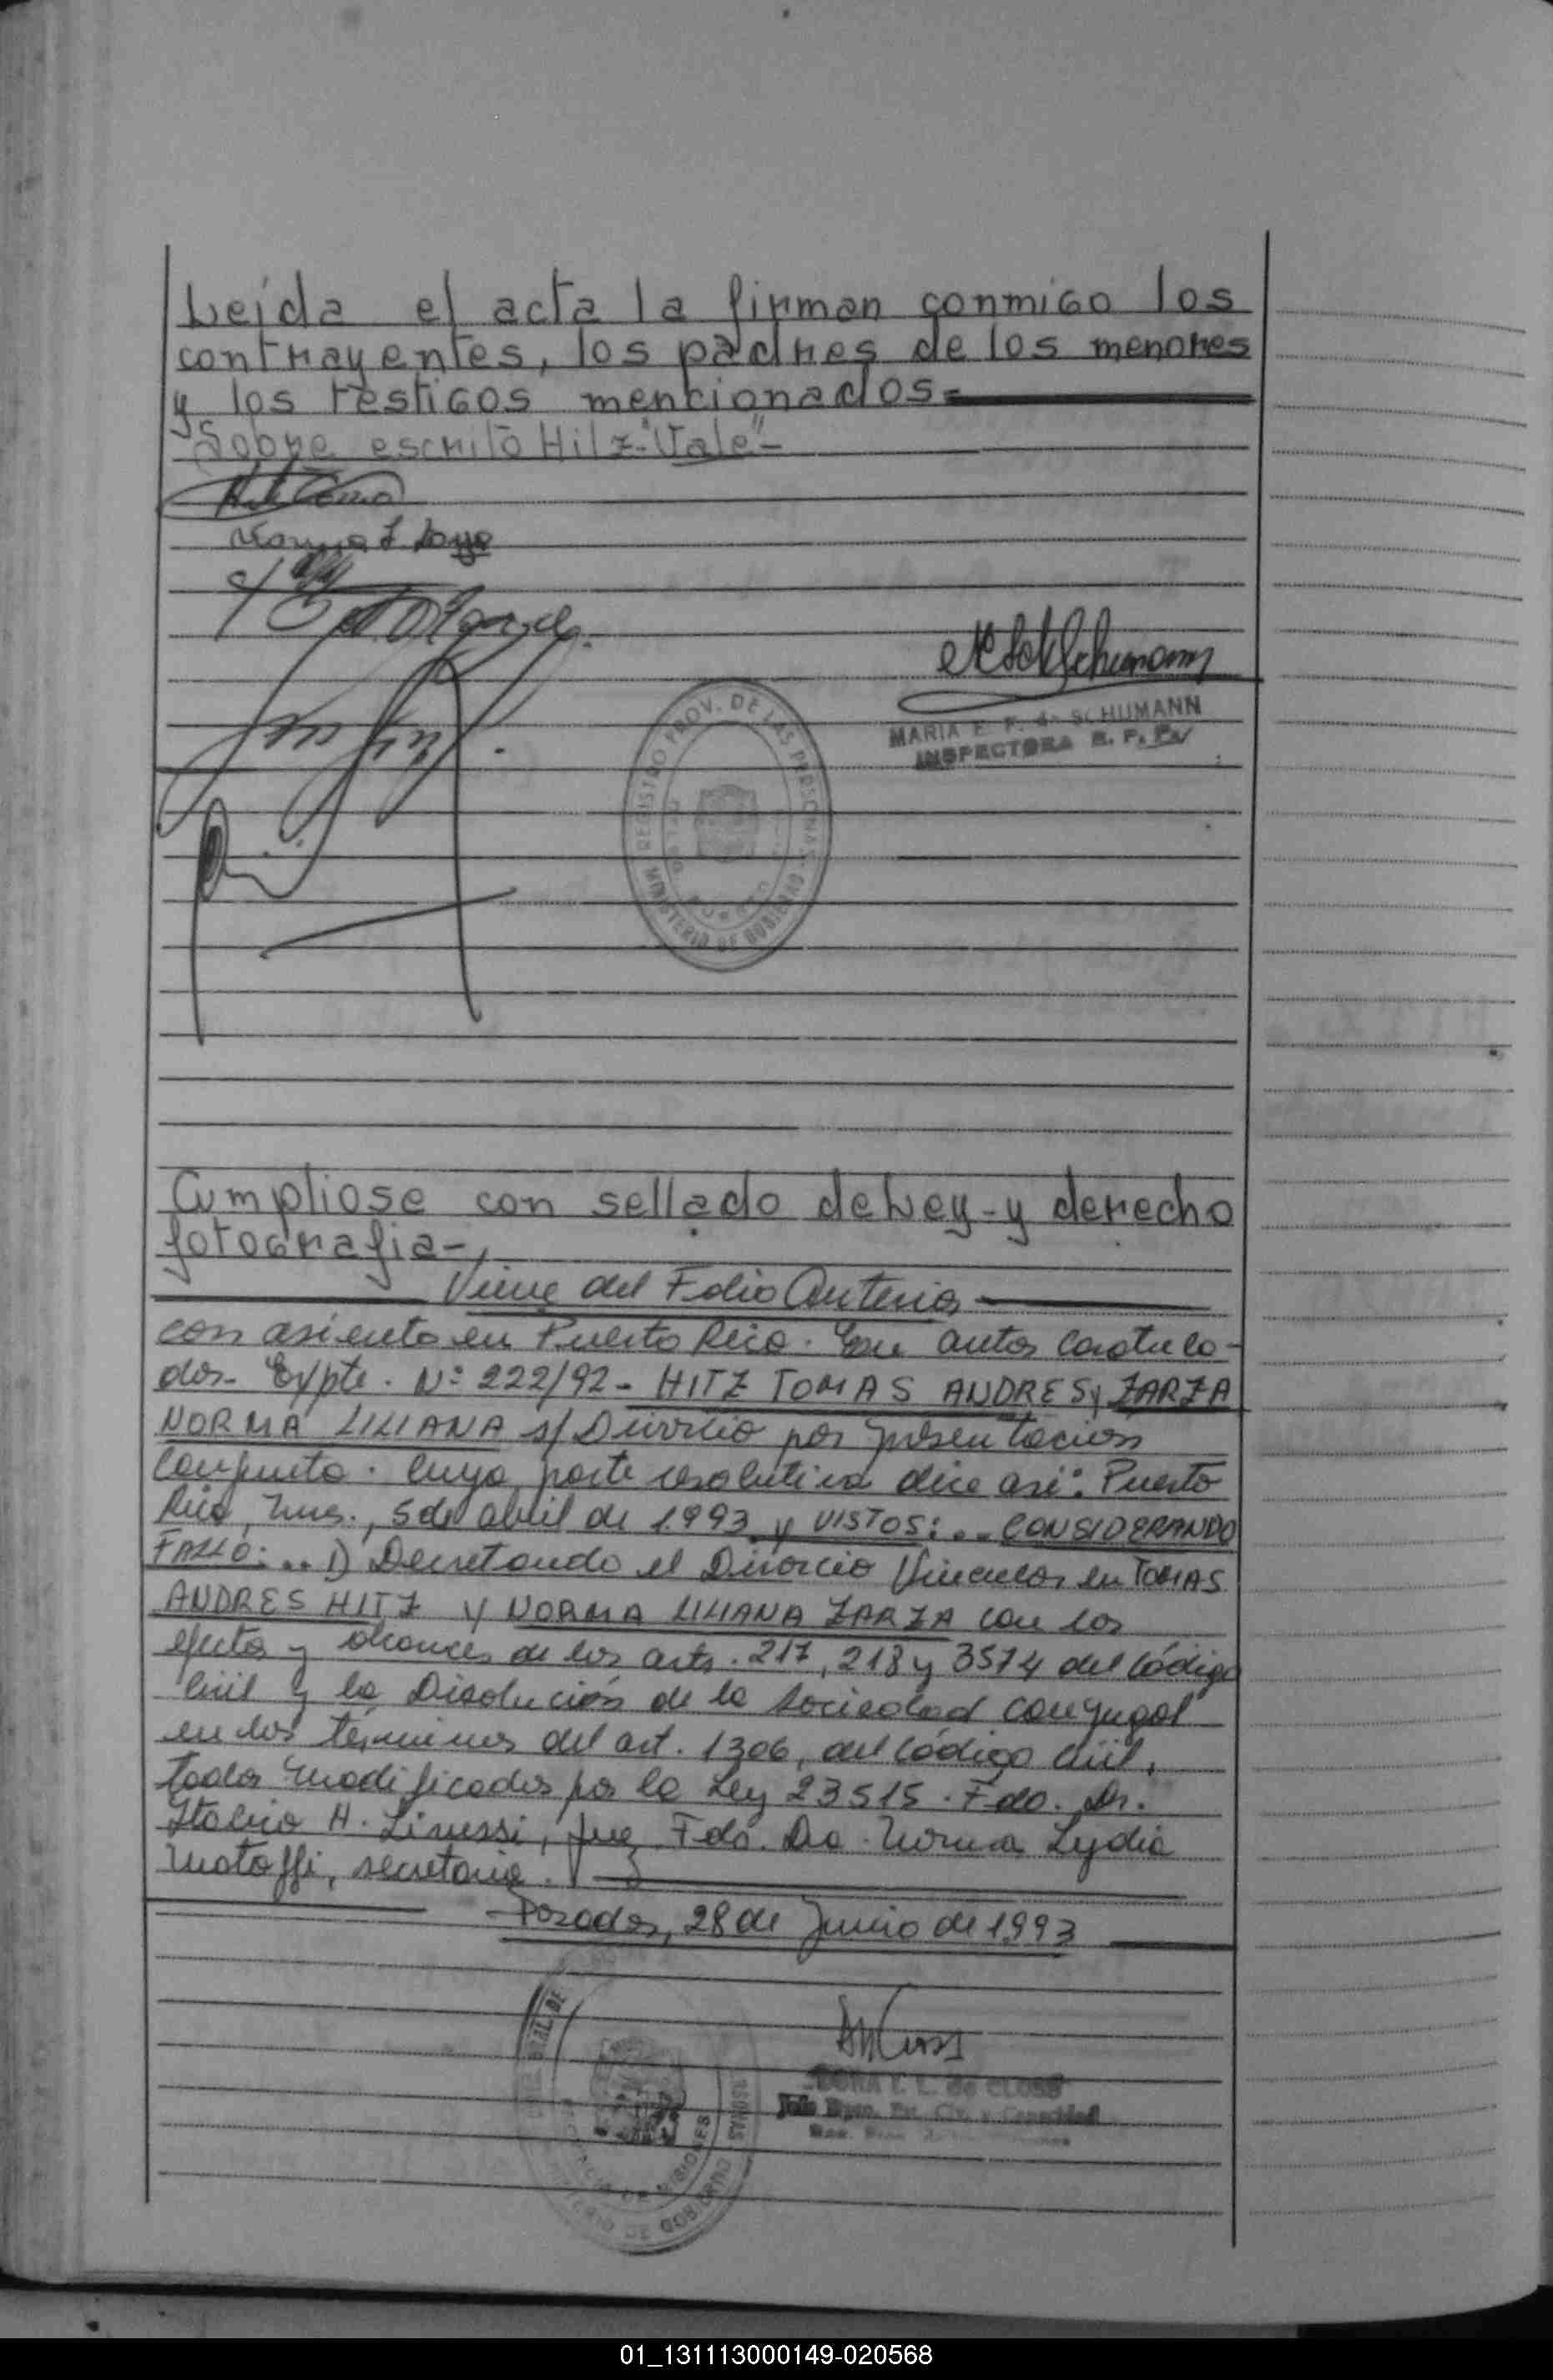 Leída el acta la firman conmigo los
contrayentes, los padres de los menores
y los testigos mencionados=
Sobre escrito Hilz-"Vale"-
MARIA E. P. de SCHUMANN
INSPECTORA R. P. P.
REGISTRO PROV. DE LAS PERSONAS
MINISTERIO DE GOBIERNO
Cumpliose con sellado de Ley-y derecho
fotografia-,
Viene del Folio Anterior
con asiento en Puerto Rico. En autos caratula-
dos- Expte. Nº 222/92- HITZ TOMAS ANDRES y ZARZA
NORMA LILIANA s/ Divorcio por presentacion
conjunta. Cuya parte resolutiva dice asi: Puerto
Rico, Mnes., 5 de abril de 1993 y VISTOS:.. CONSIDERANDO
FALLO:.. 1) Decretando el Divorcio Vincular en TOMAS
ANDRES HITZ y NORMA LILIANA ZARZA con los
efectos y alcances de los arts. 217, 218 y 3574 del Código
Civil y la Disolución de la sociedad conyugal
en los términos del art. 1306, del Código Civil,
todos modificados por la Ley 23515. Fdo. Dr.
H. juez Fdo. Dra. Norma Lydia
secretaria.
Posadas, 28 de Junio de 1993
DORA de CLOSS
01_131113000149-020568